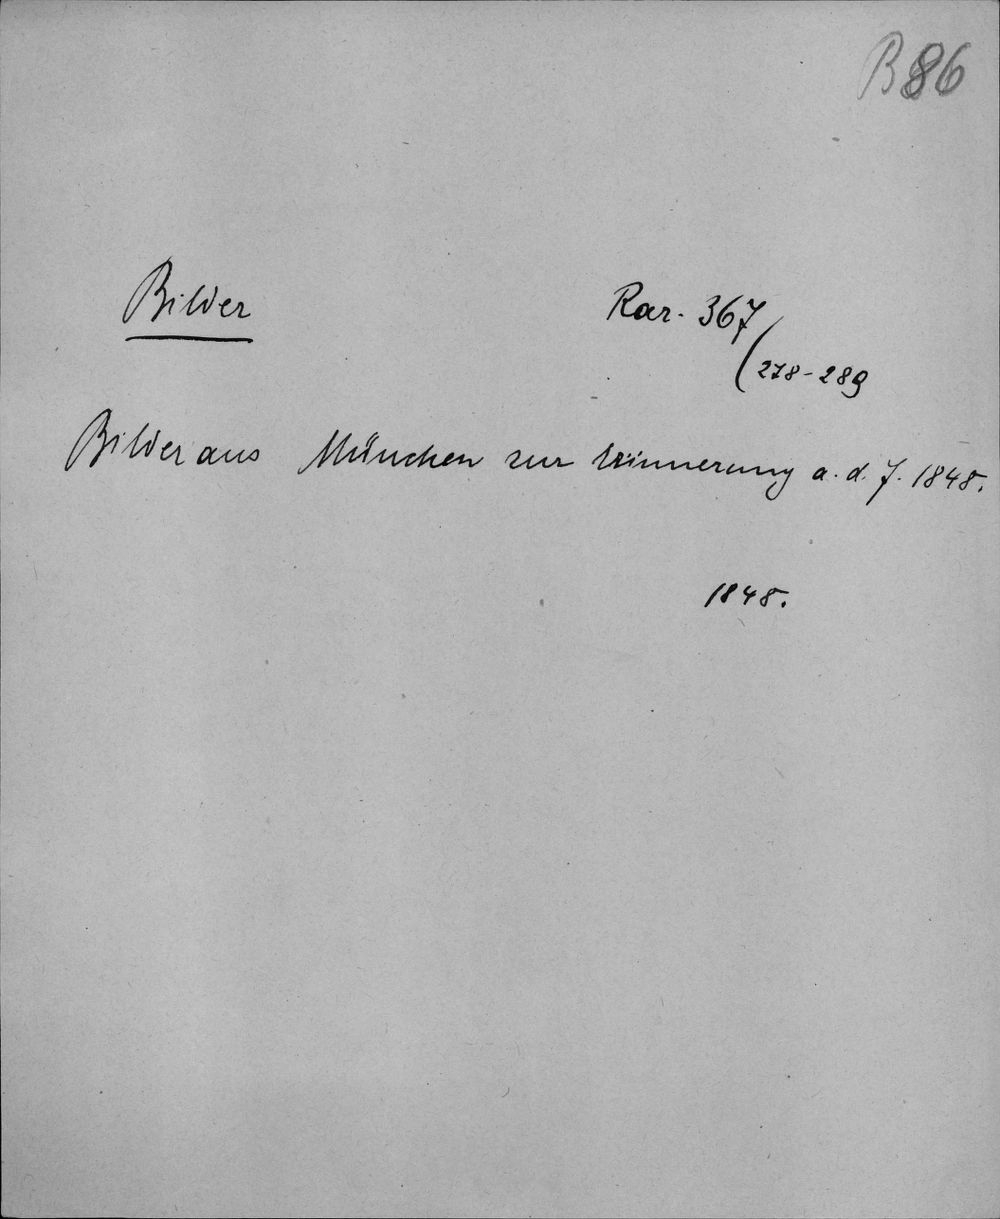 B86
Bilder
Rar. 367
(278-289
Bilder aus München zur Erinnerung a. d. J. 1848.
1848.